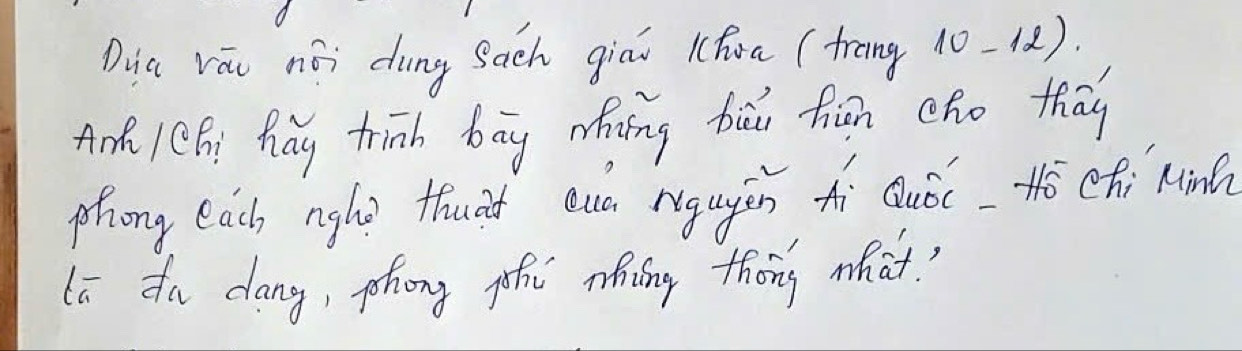 Dựa vào nội dung Sách giáo khoa (trang 10-12).
Anh/Chị hãy trình bày những biểu hiện cho thấy
phong cách nghệ thuật của Nguyễn Ái Quốc - Hồ Chí Minh
là đa dạng, phong phú nhưng thống nhất?